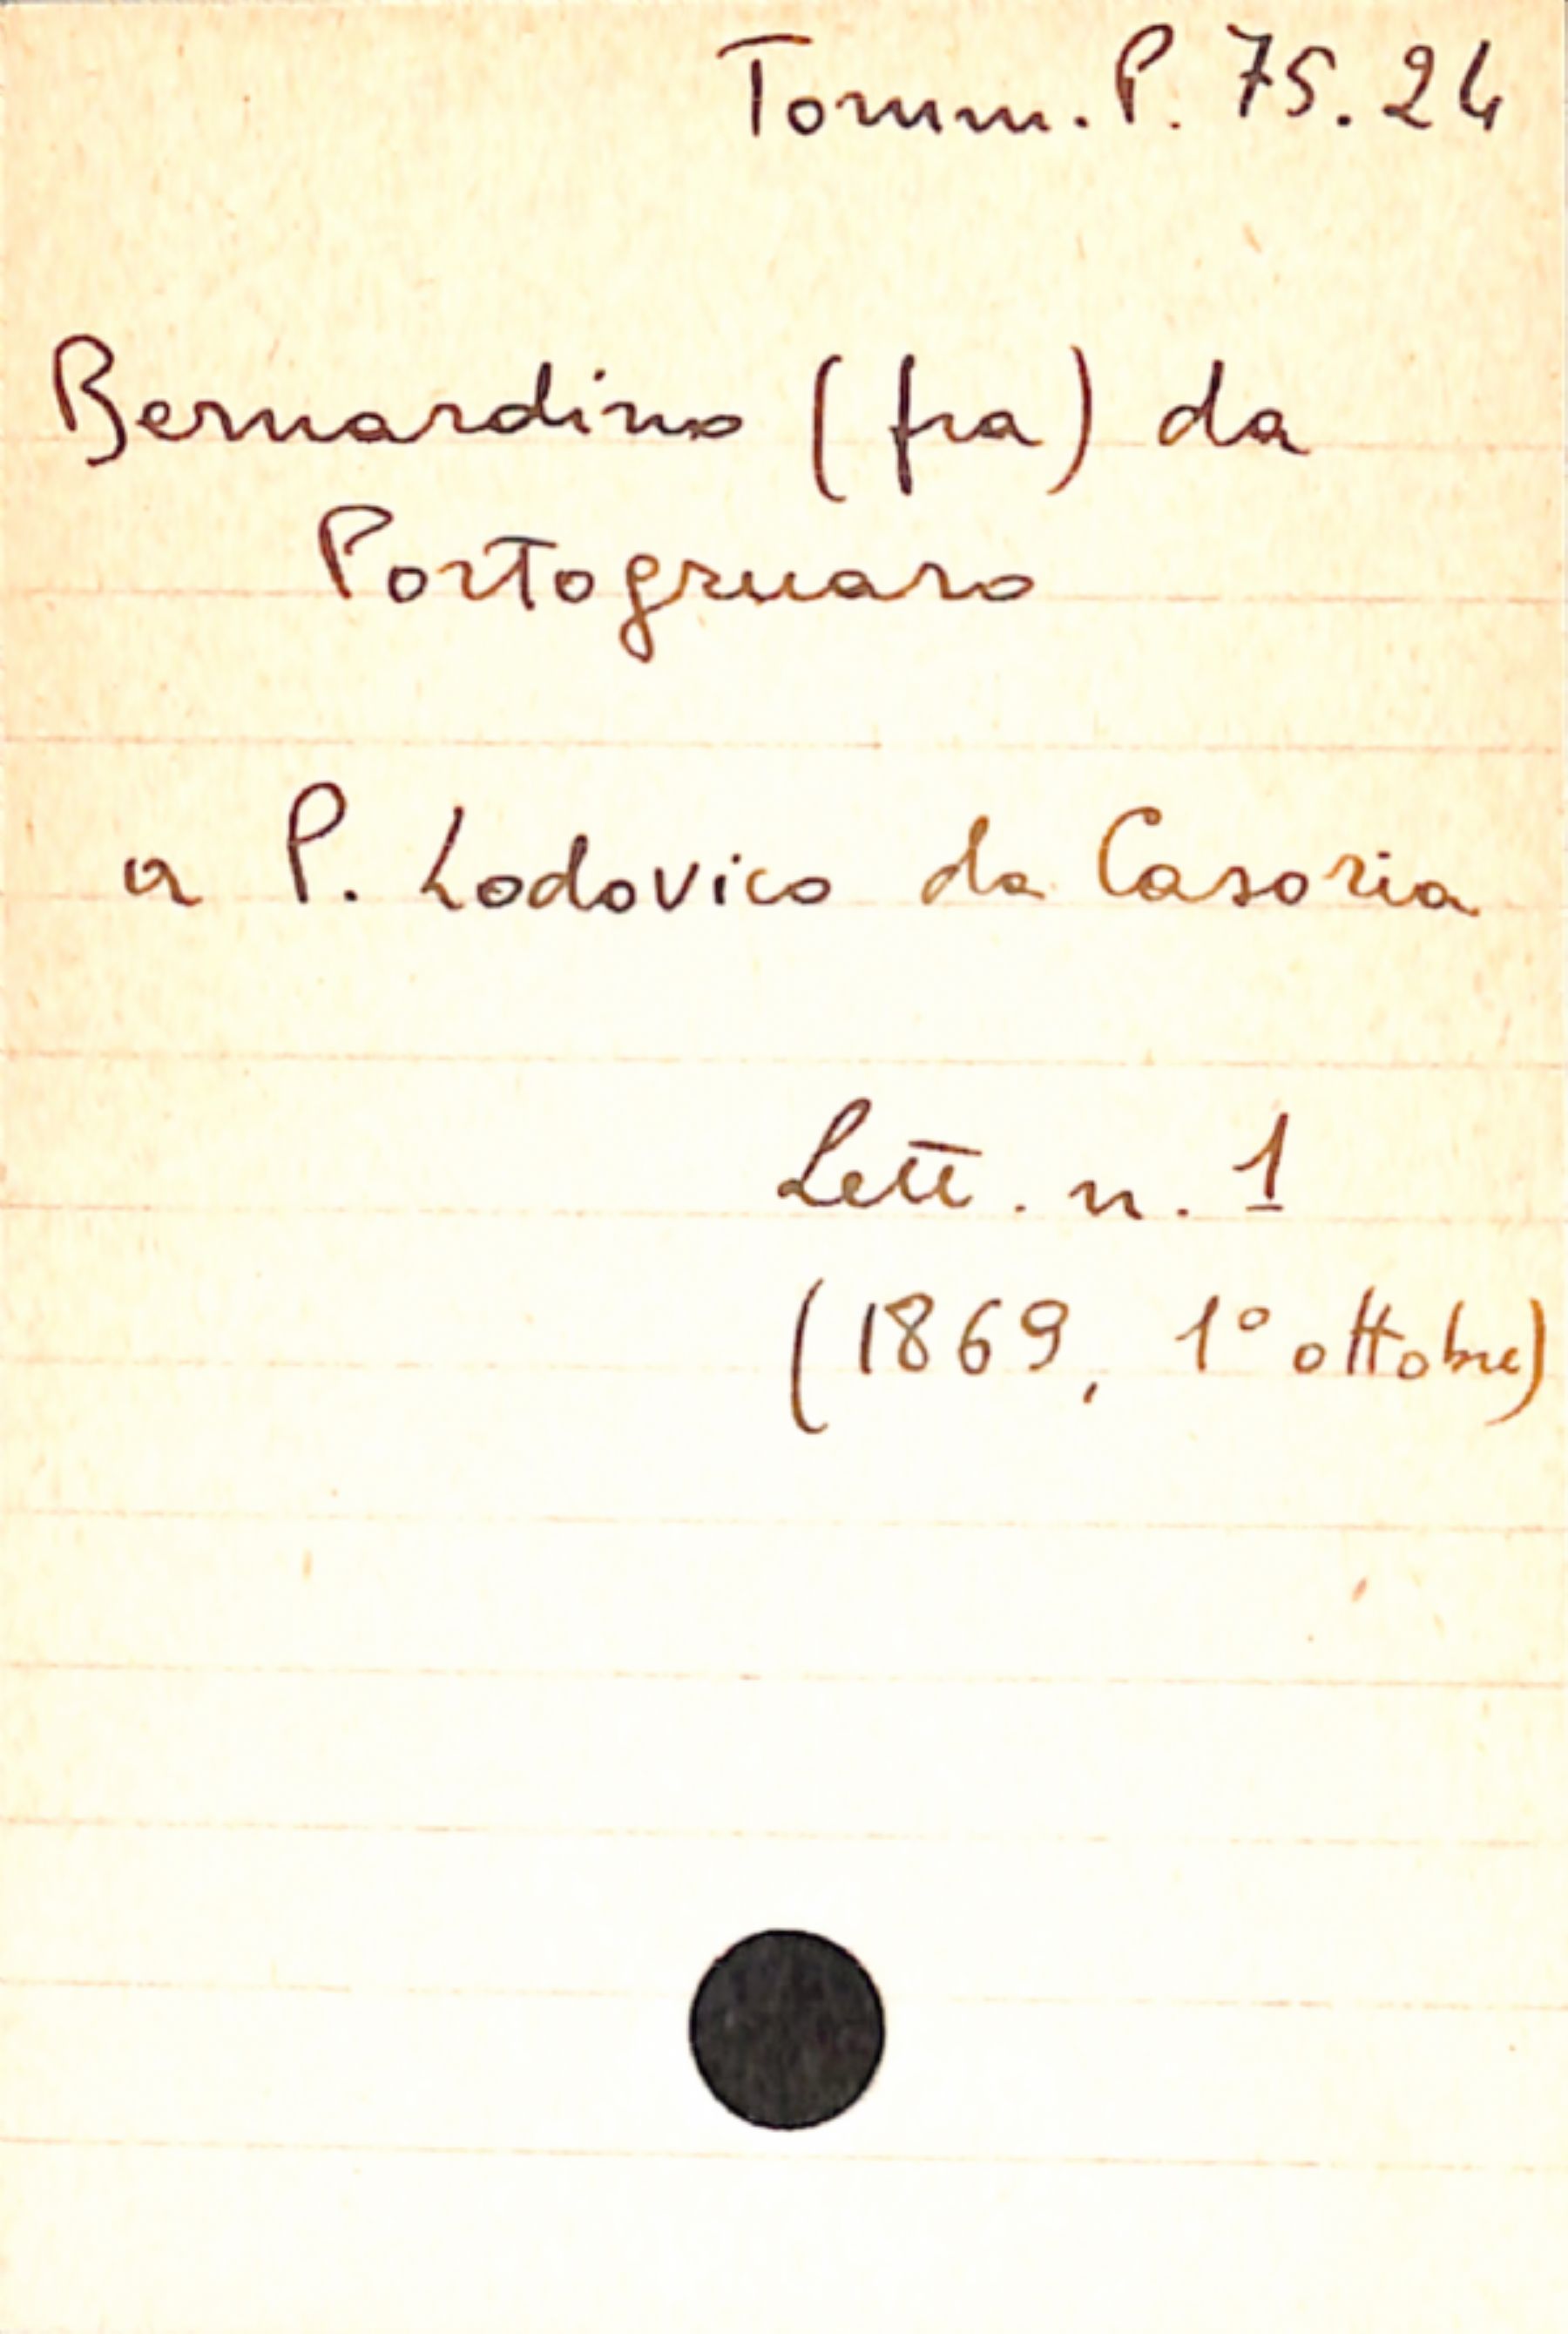 Tomm. P. 75. 24
Bernardino (fra) da
Portogruaro
a P. Lodovico da Casoria
Lett. n. 1
(1869, 1º ottobre)